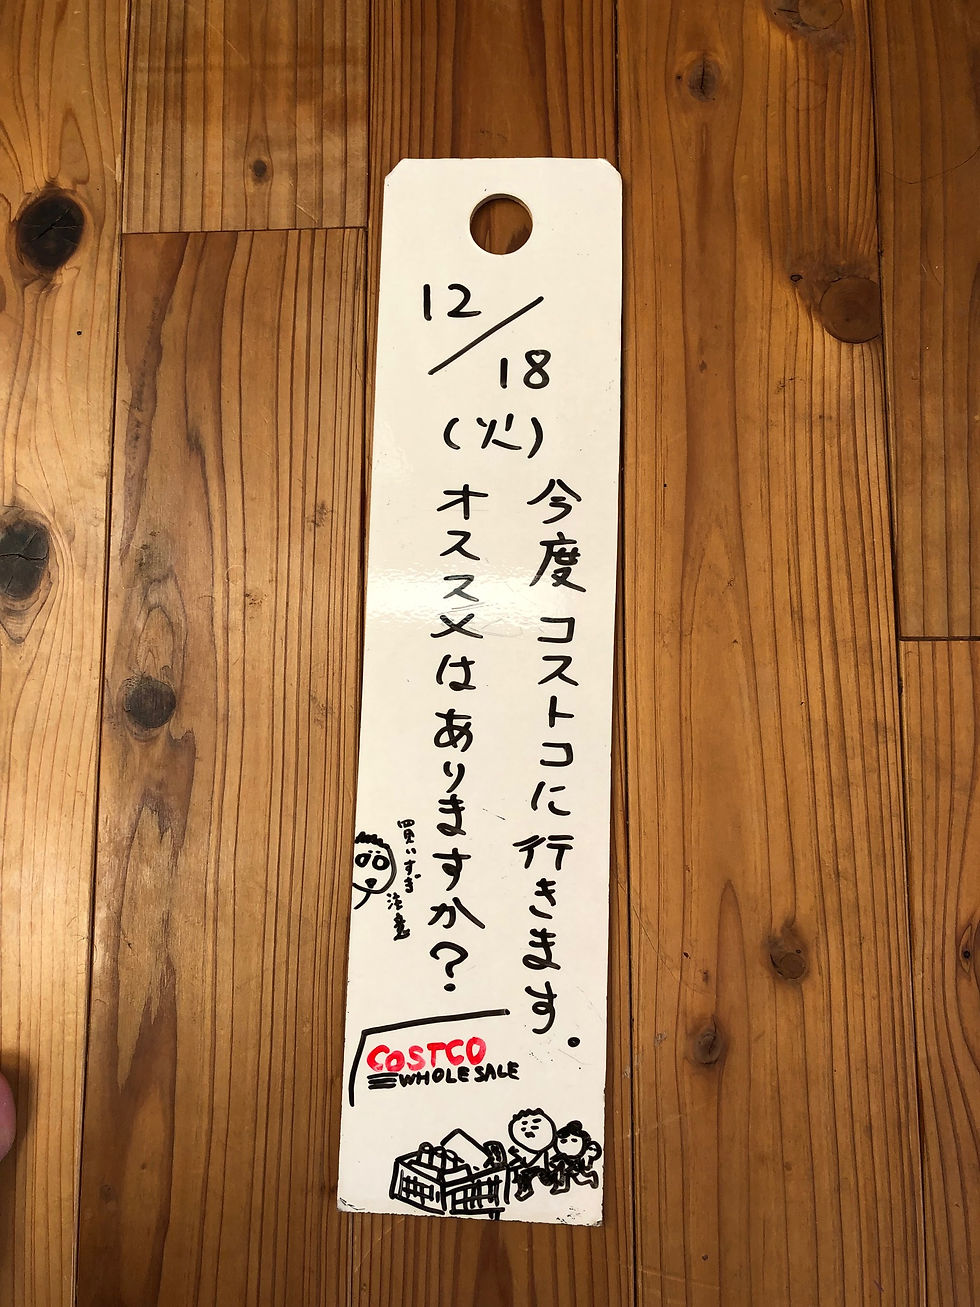 12/18
(火)
今度コストコに行きます.
オススメはありますか?
買いすぎ
注意
COSTCO
WHOLESALE